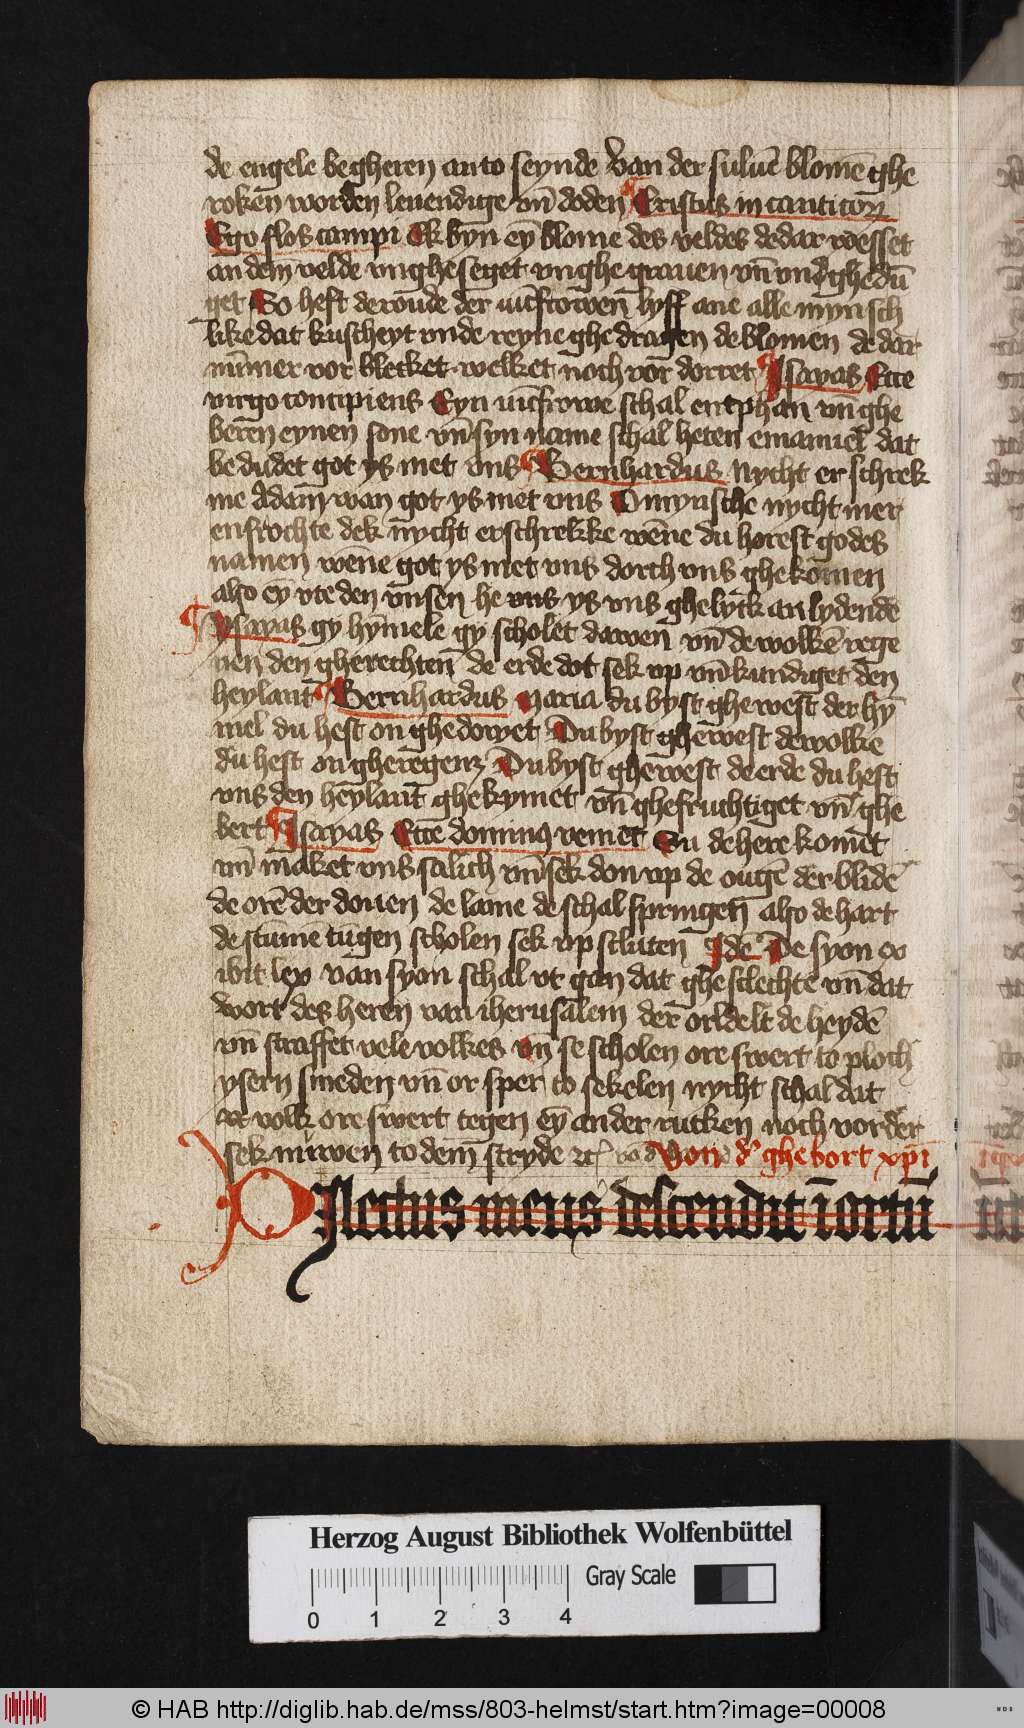 de engele begheren an to seynde Van der suluē blomē ghe
roken worden leuendige vn̄ doden Cristus in canticoꝝ
Ego flos campi Ek byn ey blome des veldes de dar wesset
an dem velde vngheseget vnghe grauen vn̄ vnd ghedū
get So heft de roude der iūcfrowen lyff ane alle mynsch
like dat kuscheyt vnde reyne ghe dragen de blomen de dar
nūmer vor blecket welket noch vor dorret Isayas Ecce
virgo concipiens Eyn iūcfrowe schal entphan vn̄ ghe
beren eynen sone vn̄ syn name schal heten emanuel dat
be dudet got ys met vns Bernhardus Nycht er schrek
me Adam wan got ys met vns O mynsche nycht mer
en frochte dek nycht erschrekke wēne du horest godes
namen wēne got ys met vns dorch vns ghekomen
also ey vte den vnsen he vns ys vns ghelyck an lydende
Ysayas gy hȳmele gy scholet dawen vn̄ de wolkē rege
nen den gherechten de erde dot sek vp vn̄ kundiget den
heylant Bernhardus Maria du byst ghewest der hȳ
mel du hest on ghedowet Du byst ghewest de wolke
du hest on gheregent Du byst ghewest de erde du hest
vns den heylant ghekymet vn̄ ghefruchtiget vn̄ ghe
bert Isayas Ecce dominus veniet Su de here komet
vn̄ maket vns salich vn̄ sek don vp de ougē der blidē
de orē der douen de lame de schal springen also de hart
de stūme tūgen scholen sek vp scluten Idē De syon ex
ibit lex van syon schal vt gan dat gheslechte vn̄ dat
wort des heren van iherusalem der ordelt de heydē
vn̄ straffet vele volkes vn̄ se scholen ore swert to ploch
ysern smeden vn̄ or sper to sekelen nycht schal dat
volk ore swert tegen ey ander rucken noch vorder
sek nuwen to dem stryde Von d' ghebort xp̄i
Dilectus meus descendit ī ortū
Herzog August Bibliothek Wolfenbüttel
Gray Scale
0 1 2 3 4
© HAB http://diglib.hab.de/mss/803-helmst/start.htm?image=00008